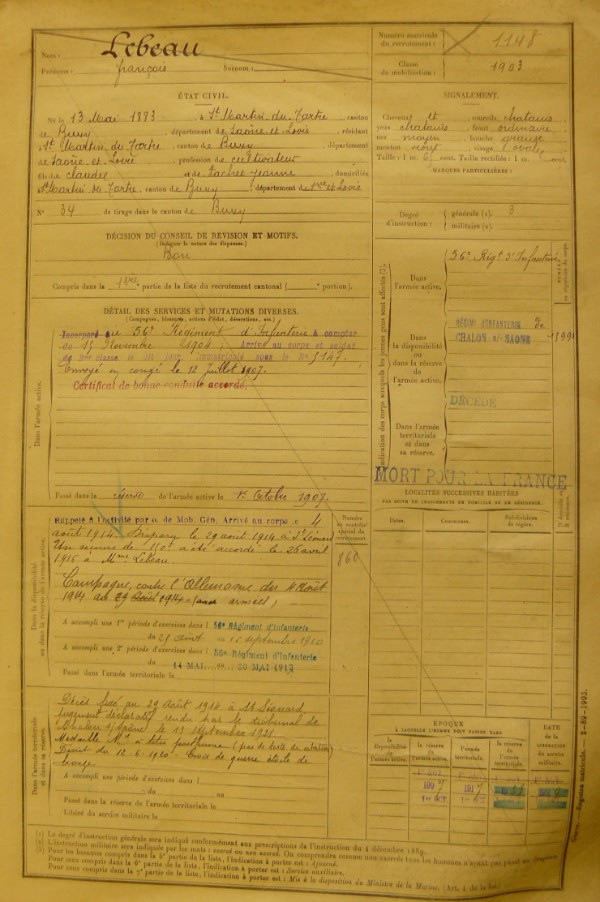 Nom : Lebeau
Prénoms : françois Surnom :
Numéro matricule du recrutement : 1148
Classe de mobilisation : 1903
ÉTAT CIVIL.
Né le 13 Mai 1883 à St Martin du Tartre canton
de Buxy, département de Saône et Loire, résidant
à St Martin du Tartre, canton de Buxy, département
de Saône et Loire, profession de cultivateur
fils de claude et de Jeanne domiciliés
St Martin du Tartre, canton de Buxy département de Sne et Loire
N° 34 de tirage dans le canton de Buxy
SIGNALEMENT.
Cheveux et sourcils chatains
yeux chatains front ordinaire
nez moyen bouche
menton rond visage ovale
Taille : 1 m. 6 cent. Taille rectifiée : 1 m. cent.
MARQUES PARTICULIÈRES :
Degré d'instruction : générale (1). 3
militaire (2).
DÉCISION DU CONSEIL DE REVISION ET MOTIFS.
Bon
Compris dans la 1ère partie de la liste du recrutement cantonal ( portion).
DÉTAIL DES SERVICES ET MUTATIONS DIVERSES.
(Campagnes, blessures, actions d'éclat, décorations, etc.)
Incorporé au 56e Régiment d'Infanterie à compter
du 15 Novembre 1904; Arrivé au corps et soldat
de 2me classe le dit jour immatriculé sous le No 5147.
Envoyé en congé le 12 juillet 1907.
Certificat de bonne conduite accordé.
Dans l'armée active.
Passé dans la réserve de l'armée active le 1er Octobre 1907.
Dans l'armée active. 56e Régt d'Infanterie
Dans la disponibilité ou dans la réserve de l'armée active.
RÉGIMT D'INFANTERIE De
CHALON s/-SAONE
DÉCÉDÉ
Dans l'armée territoriale et dans sa réserve.
MORT POUR LA FRANCE
LOCALITÉS SUCCESSIVES HABITÉES
PAR SUITE DE CHANGEMENTS DE DOMICILE OU DE RÉSIDENCE.
Dates. Communes. Subdivisions de région.
Rappelé à l'activité par o. de Mob. Gén. Arrivé au corps le 4
août 1914. Disparu le 29 août 1914 à St Léonard
Un secours de 150f a été accordé le 26 avril
1916 à Mme Lebeau.
860
Campagne contre l'Allemagne du 4 Août
1914 au 29 Août 1914 (aux armées)
A accompli une 1re période d'exercices dans l 56e Régiment d'Infanterie
du 21 août au 12 septembre 1910
A accompli une 2e période d'exercices dans l 56e Régiment d'Infanterie
du 14 MAI au 30 MAI 1912
Passé dans l'armée territoriale le
Décès fixé au 29 Août 1914 à St Léonard,
jugement déclaratif rendu par le tribunal de
Chalon s/Saône le 13 septembre 1921.
Médaille Mre à titre posthume (pas de texte de citation)
Décret du 12.6.1920. Croix de guerre étoile de
bronze
A accompli une période d'exercices dans l
du au
Passé dans la réserve de l'armée territoriale le
Libéré du service militaire le
ÉPOQUE
À LAQUELLE L'HOMME DOIT PASSER DANS
la disponibilité de l'armée active. la réserve de l'armée active. l'armée territoriale. la réserve de l'armée territoriale.
DATE de la LIBÉRATION du service militaire.
(1) Le degré d'instruction générale sera indiqué conformément aux prescriptions de l'instruction du 4 décembre 1889.
Pour les hommes compris dans la 5e partie de la liste, l'indication à porter est : Ajourné.
Pour ceux compris dans la 6e partie de la liste, l'indication à porter est : Service auxiliaire.
Pour ceux compris dans la 7e partie de la liste, l'indication à porter est : Mis à la disposition du Ministre de la Marine. (Art. 4 de la loi.)